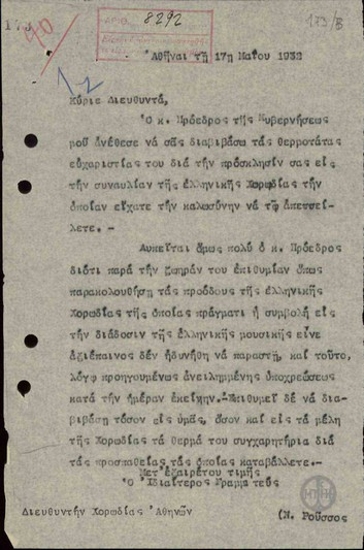 173
40
ΑΡΙΘ. 8292
173/B
1-2
Ἀθῆναι τῇ 17ῃ Μαΐου 1932
Κύριε Διευθυντά,
Ὁ κ. Πρόεδρος τῆς Κυβερνήσεως
μοῦ ἀνέθεσε νά σᾶς διαβιβάσω τάς θερμοτάτας
εὐχαριστίας του διά τήν πρόσκλησίν σας εἰς
τήν συναυλίαν τῆς ἑλληνικῆς Χορωδίας τήν
ὁποίαν εἴχατε τήν καλωσύνην νά τῷ ἀπευθεί-
λετε.-
Λυπεῖται ὅμως πολύ ὁ κ. Πρόεδρος
διότι παρά τήν ζωηράν του ἐπιθυμίαν ὅπως
παρακολουθήσῃ τάς προόδους τῆς ἑλληνικῆς
Χορωδίας τῆς ὁποίας πράγματι ἡ συμβολή εἰς
τήν διάδοσιν τῆς ἑλληνικῆς μουσικῆς εἶνε
ἀξιέπαινος δέν ἠδυνήθη νά παραστῇ, καί τοῦτο,
λόγῳ προηγουμένως ἀνειλημμένης ὑποχρεώσεως
κατά τήν ἡμέραν ἐκείνην. Ἐπιθυμεῖ δέ νά δια-
βιβάσῃ τόσον εἰς ὑμᾶς, ὅσον καί εἰς τά μέλη
τῆς Χορωδίας τά θερμά του συγχαρητήρια διά
τάς προσπαθείας τάς ὁποίας καταβάλλετε.-
Μετ' ἐξαιρέτου τιμῆς
Ὁ Ἰδιαίτερος Γραμματεύς
Διευθυντήν Χορωδίας Ἀθηνῶν
(Ν. Ροῦσσος